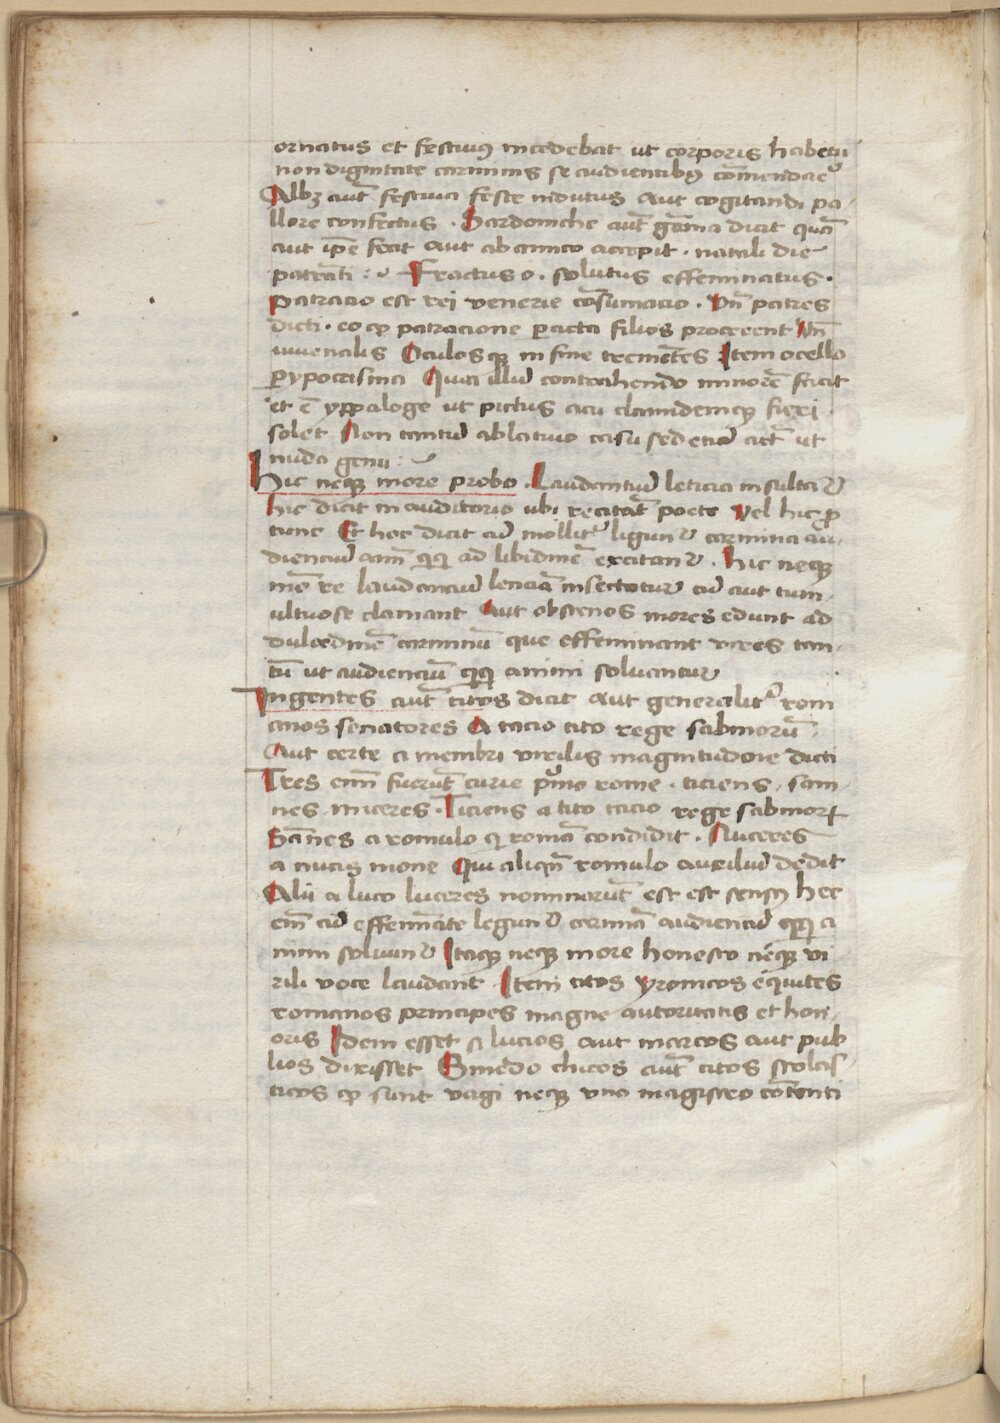 ornatus et festiuꝯ incedebat ut corporis habetu
non dignitate carminis se audientibꝯ cōmendaret᷑
Albꝫ aut̄ festiua feste indutus Aut cogitandi pa-
llore confectus . Sardoniche aut̄ gēma dicit quā
aut ip̄e fecit aut ab amico accepit . natali die
patrāti : Fractus o . solutus effeminatus .
patracio est rei venerie cōsumacio . Vn̄ patres
dicti . eo ꝙ patracione ꝑacta filios procreent Vn̄
iuuenalis Oculosqꝫ in fine tremētes Item ocello
ꝑ ypocrisma Quia illud contrahendo minorē facit
et ē yppaloge ut pictus acu clamidemqꝫ fieri
solet Non tantū ablatiuo casu sed etiā actō ut
nuda genu :
Hic neqꝫ more probo . Laudantiū leticia insultat᷑
hic dicit in auditorio ubi recitāt poete Vel hic ꝓ
tunc Et hec dicit cū mollit᷑ legunt᷑ carmina au-
dienciū aīm qͣqͣ ad libidinē excitant᷑ . hic neqꝫ
mō re laudanciū lenciā insectatur cū aut tum-
ultuose clamant Aut obscenos mores edunt ad
dulcedinē carminū que effeminant vires tan-
tū ut audienciū qͣqͣ animi soluantur
Ingentes aut̄ titos dicit aut generalit᷑ rom
anos senatores A tacio tito rege sabinorū
Aut certe a membri virilis magnitudine dicti
Tres enī fuerūt curie pͥmo rome . ticiens . sam
nes . niceres . Ticiens a tito tacio rege sabinoꝝ
Sānes a romulo qͥ romā condidit . Nuceres
a nucis mone Qui aliqn̄ romulo auxiliū dedit
Alii a luco luceres nominarūt est est sensꝯ hec
enī cū effeminate legunt᷑ carmīa audienciū qͣqͣ a
nimi soluunt᷑ Itaqꝫ neqꝫ more honesto neqꝫ vi
rili voce laudant Item titos yronicos equites
romanos principes magne autoritatis et hon-
oris Idem esset si lucios aut marcos aut pub
lios dixisset Quedo chicos aut̄ titos scolas-
ticos ꝙ sunt vagi neqꝫ vno magistro cōtenti